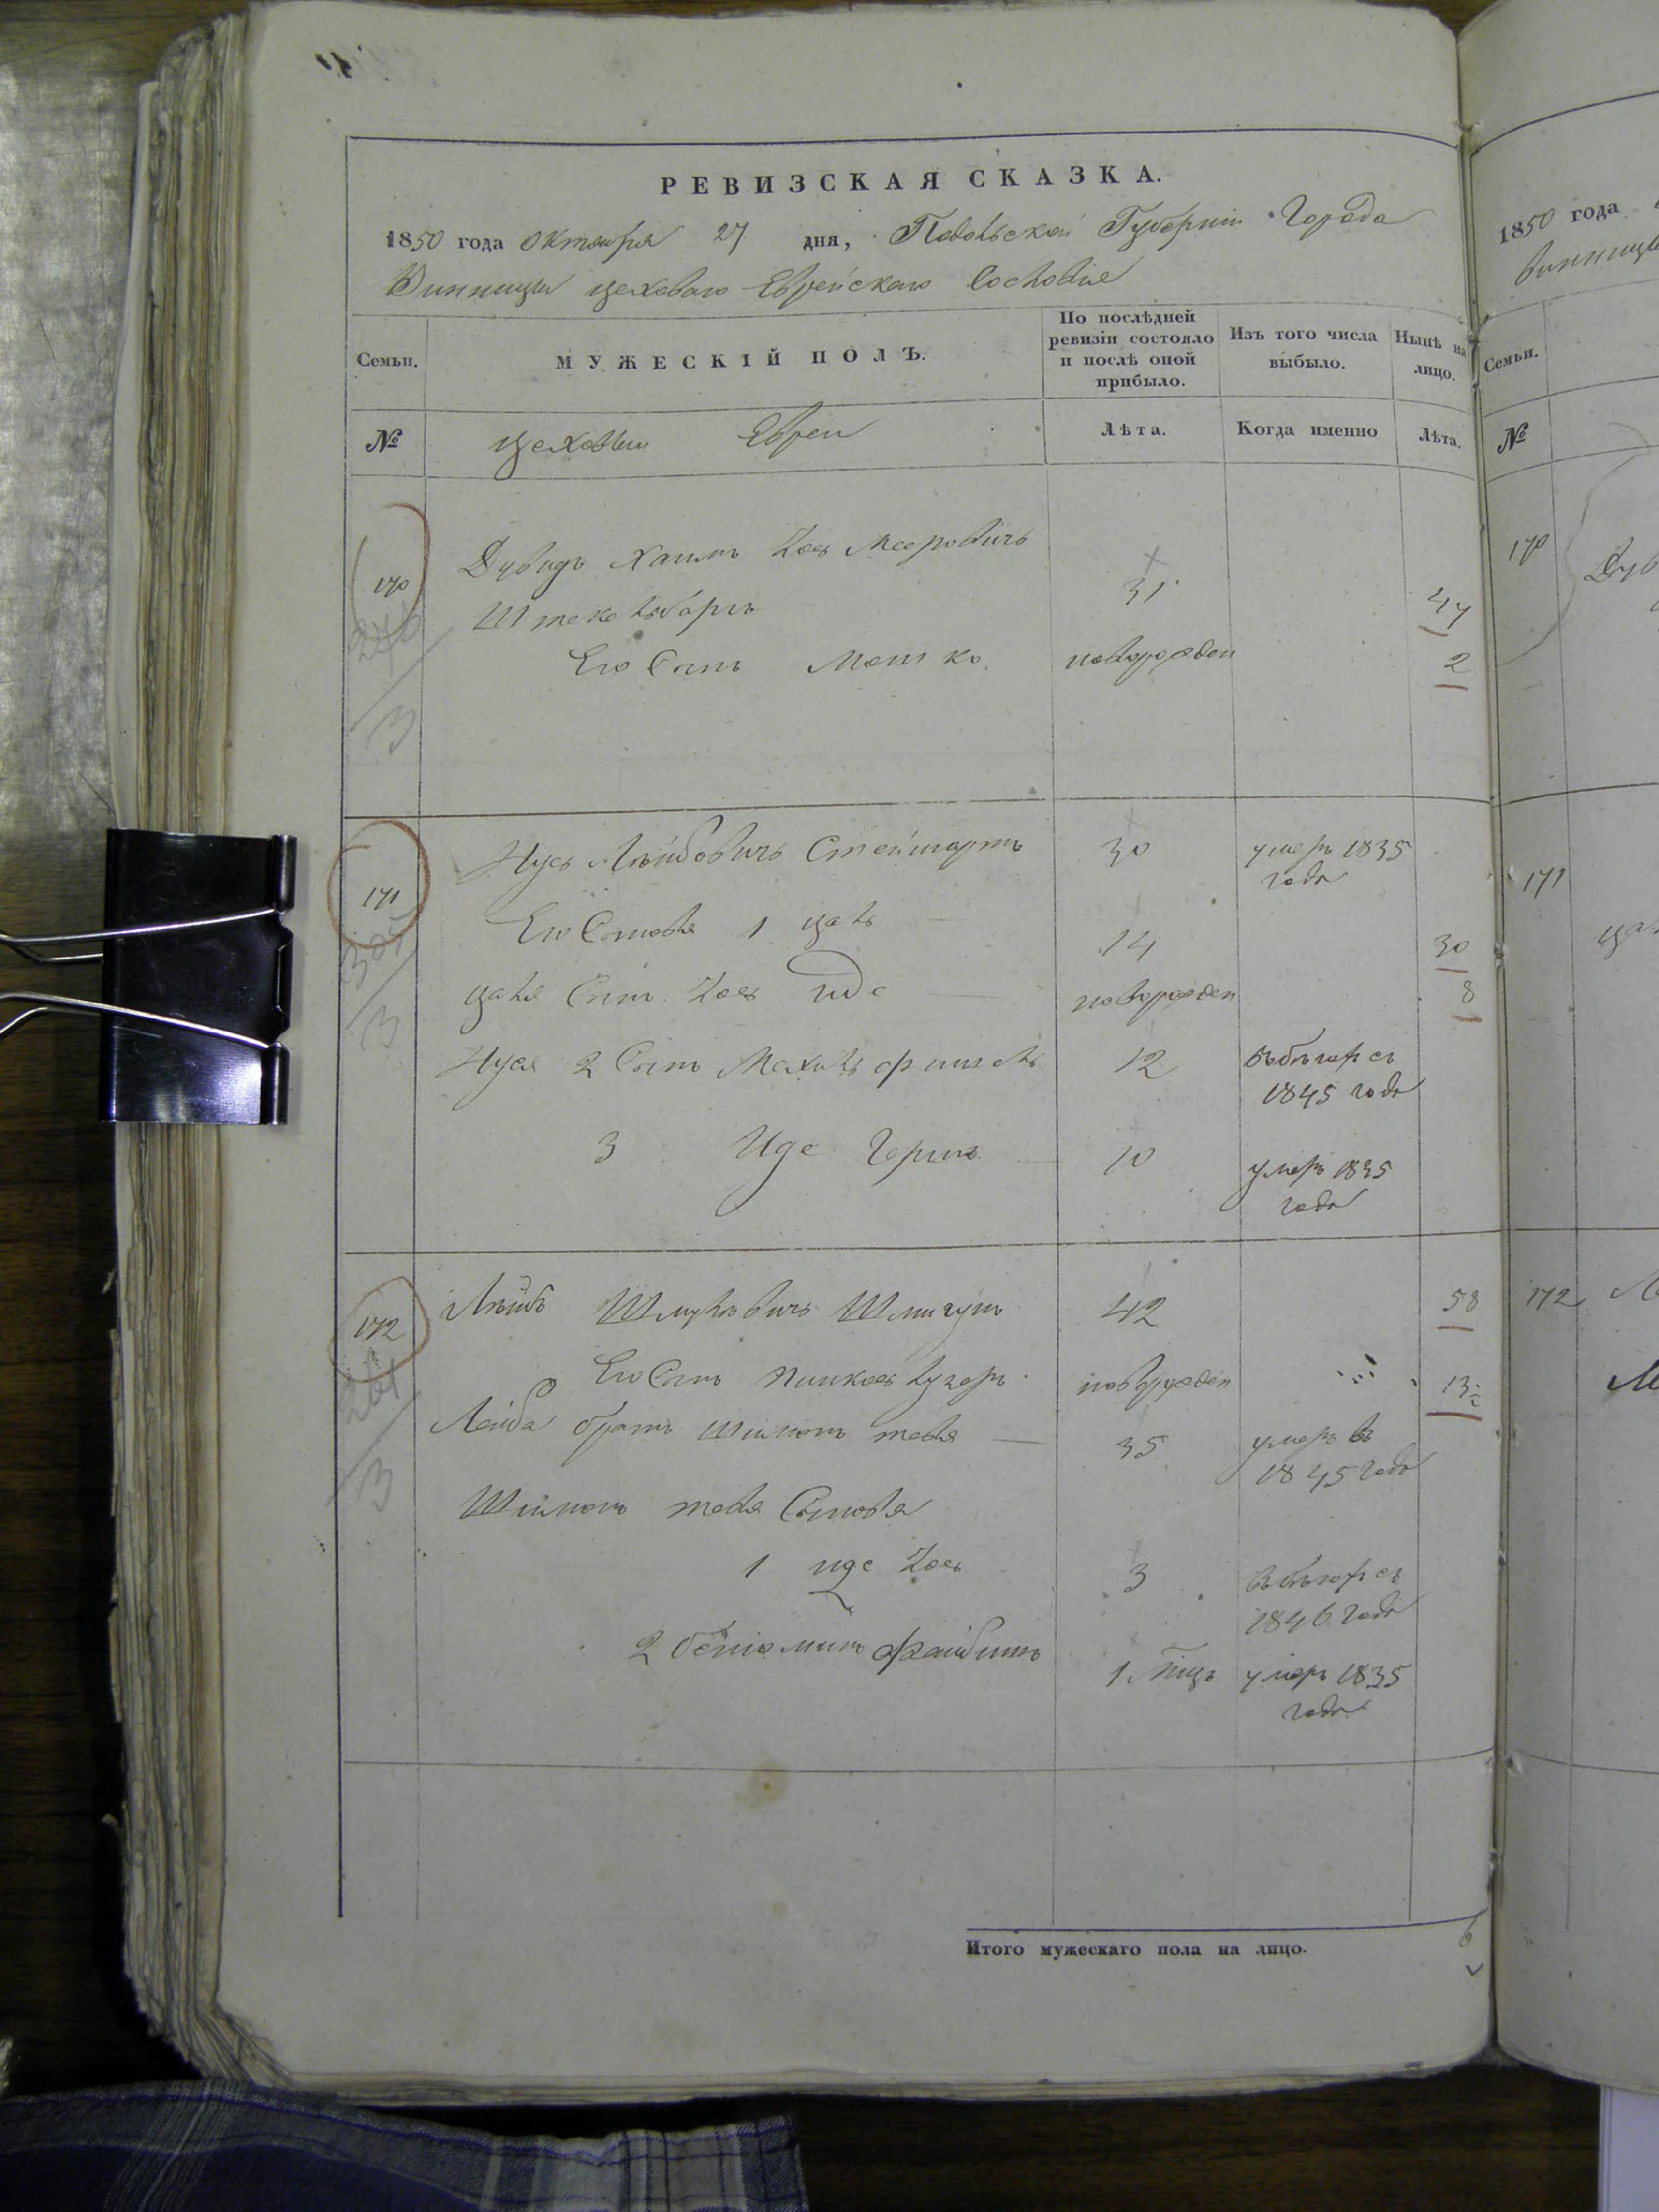 РЕВИЗСКАЯ СКАЗКА.
1850 года октября 27 дня, Подольской Губерніи Города
Винницы цеховаго Еврейскаго Сословія
Семьи.
МУЖЕСКІЙ ПОЛЪ.
По послѣдней ревизіи состояло и послѣ оной прибыло.
Изъ того числа выбыло.
Нынѣ на лицо.
№
цеховыи Евреи
Лѣта.
Когда именно
Лѣта.
170
Дувидъ Хаимъ Іось Мееровичъ
31
47
Штекельбергъ
Его Сынъ Мошко
новорожден
2
3
171
Нусь Лейбовичъ Стейнгартъ
30
умеръ 1835 года
Его Сыновья 1 Цаль
14
30
Цаля Сынъ Іось
новорожден
8
3
Нуся 2 Сынъ Мехиль Фишель
12
въ бѣгах съ 1845 года
3 Иде Герша
10
умеръ 1835 года
172
Лейбъ Шмулевичъ
42
58
Его Сынъ Пинкас
новорожден
13
Лейба братъ Шимонъ тевля
35
умеръ въ 1845 году
3
Шимона тевля Сыновья
1 иде Іось
3
въ бѣгах съ 1846 года
2 Беніоминъ Файбишъ
1
умеръ 1835 года
Итого мужескаго пола на лицо.
6
1850 года
Винницы
Семьи.
№
170
Дув
171
172